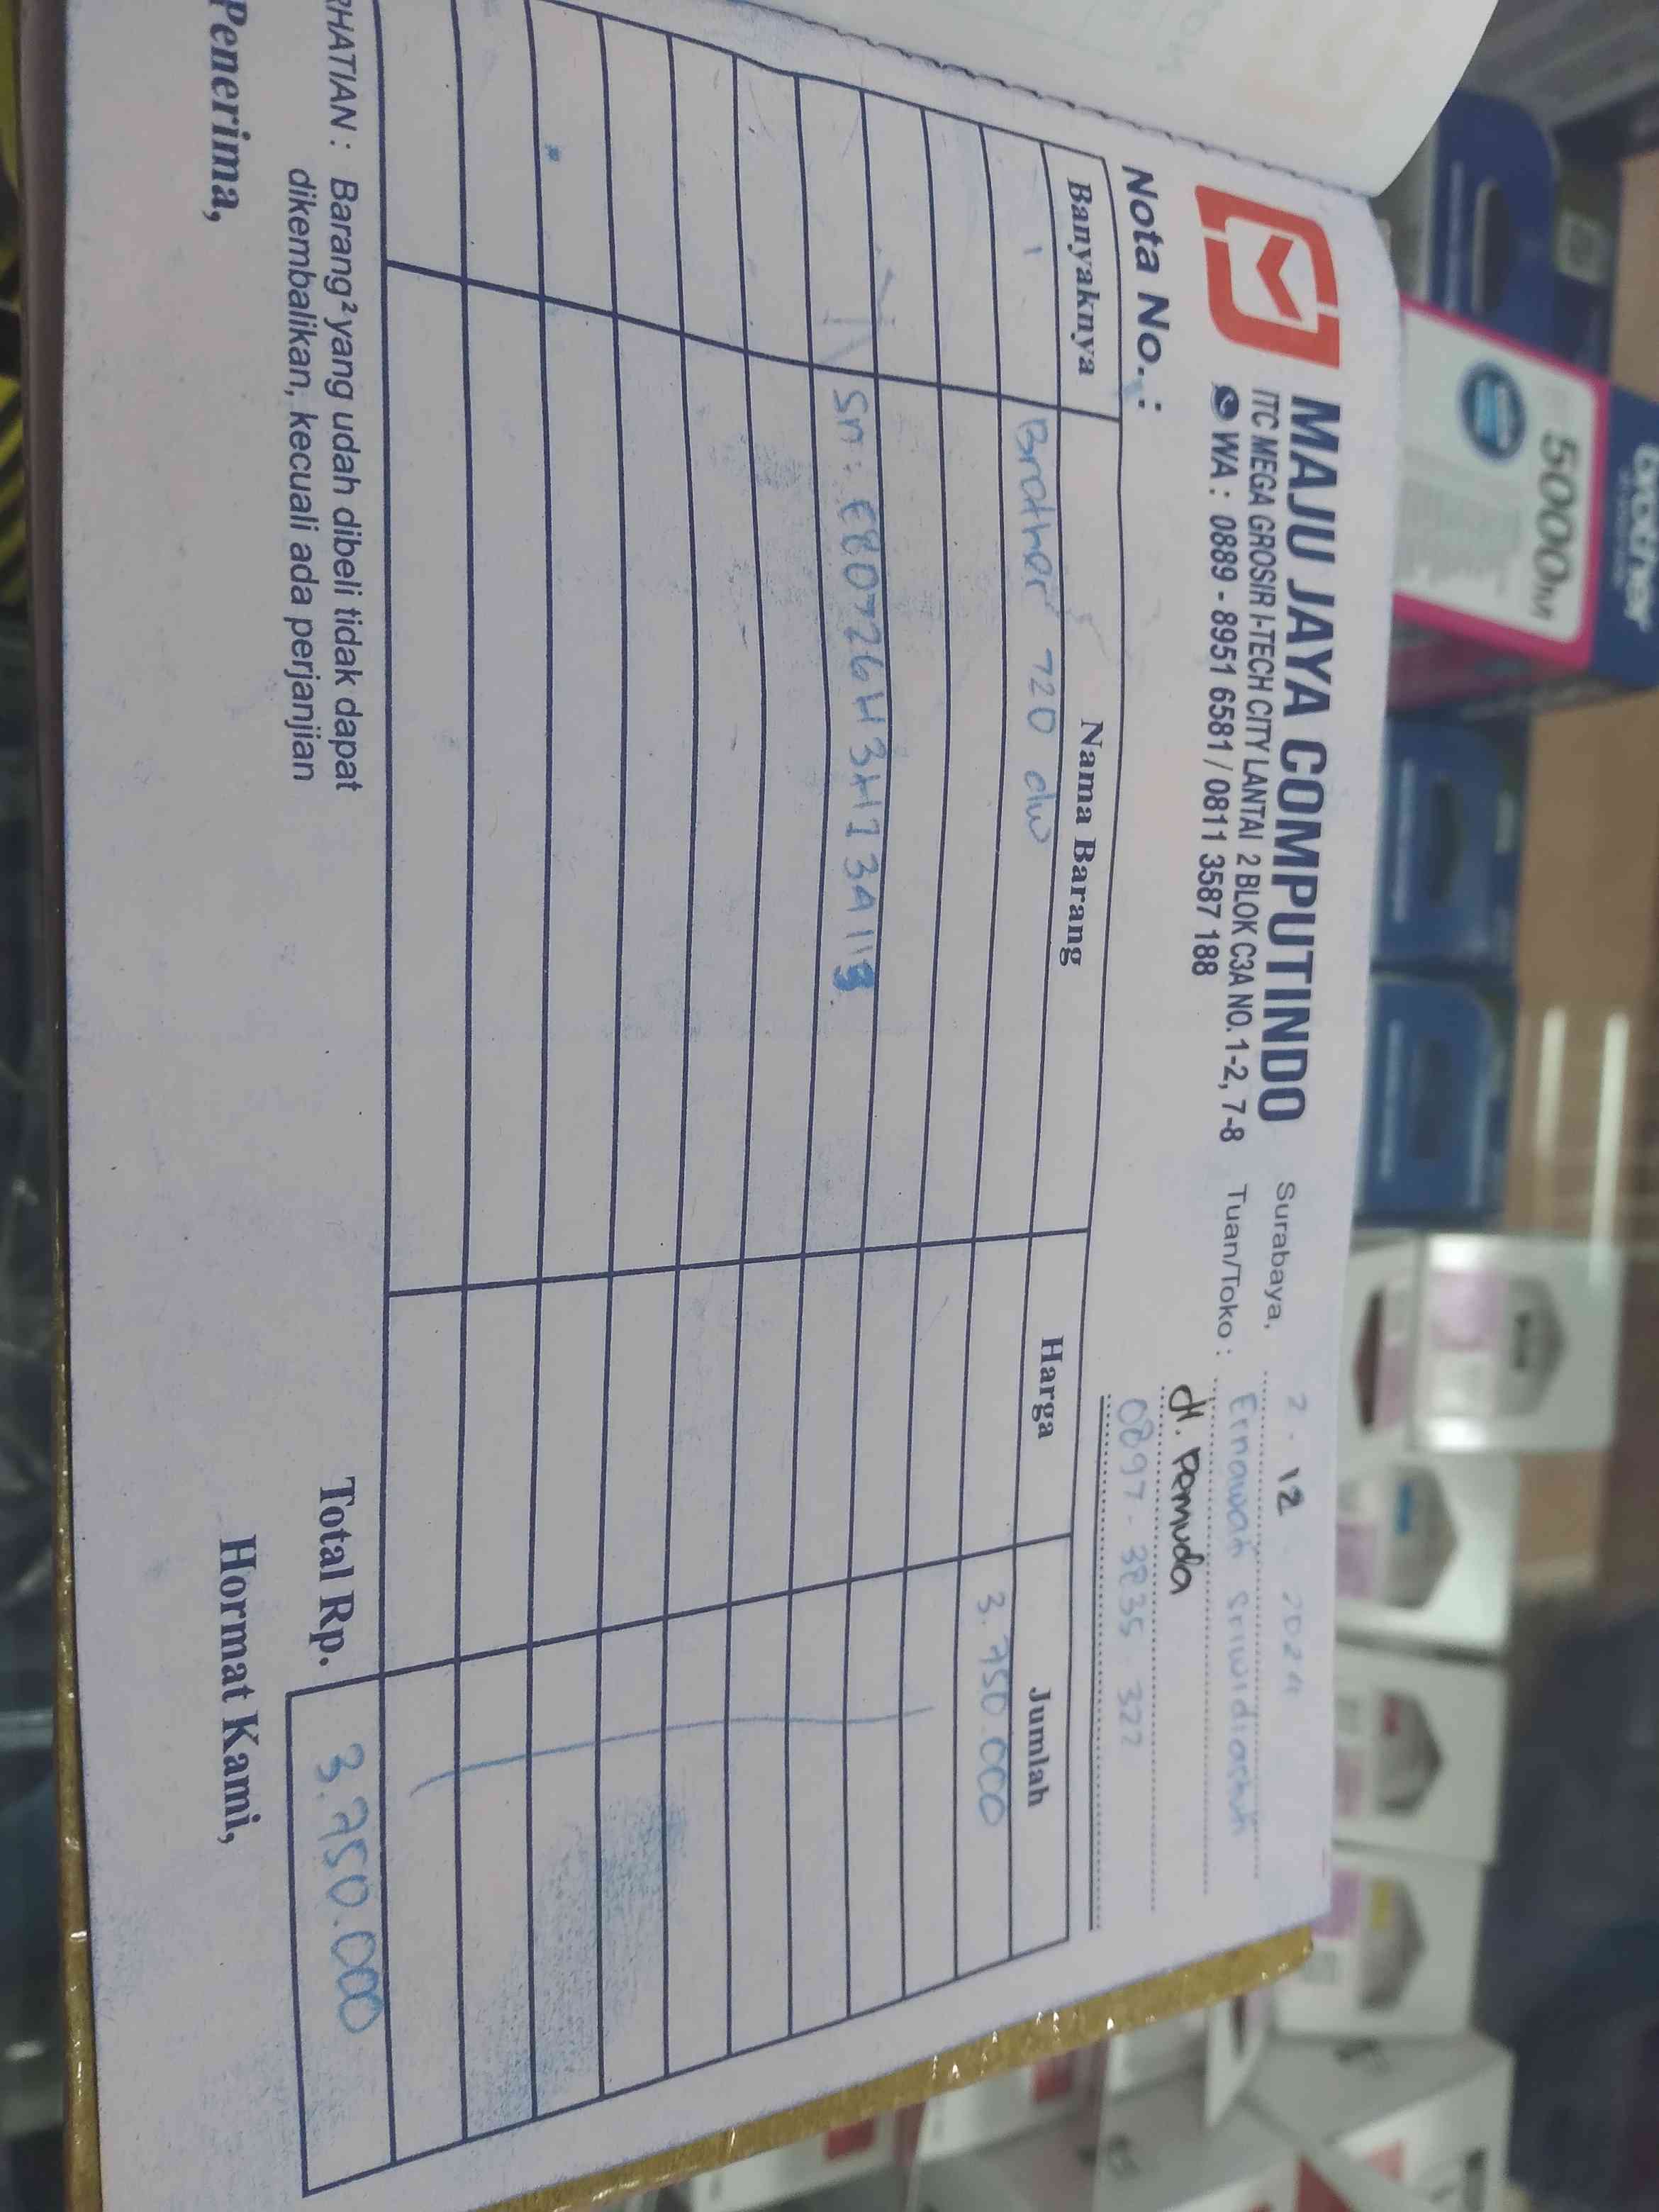 MAJU JAYA COMPUTINDO
ITC MEGA GROSIR I-TECH CITY LANTAI 2 BLOK C3A NO. 1-2, 7-8
WA : 0889 - 8951 6581 / 0811 3587 188
Surabaya, 2 - 12 2024
Tuan/Toko : Ernawan
Jl. Pemuda
0897 - 3835 322
Nota No. :
Banyaknya Nama Barang Harga Jumlah
1 Brother 720 dw 3.750.000
Sn : E80726H3H13A113
Total Rp. 3.750.000
RHATIAN : Barang² yang udah dibeli tidak dapat
dikembalikan, kecuali ada perjanjian
Penerima,
Hormat Kami,
brother
5000